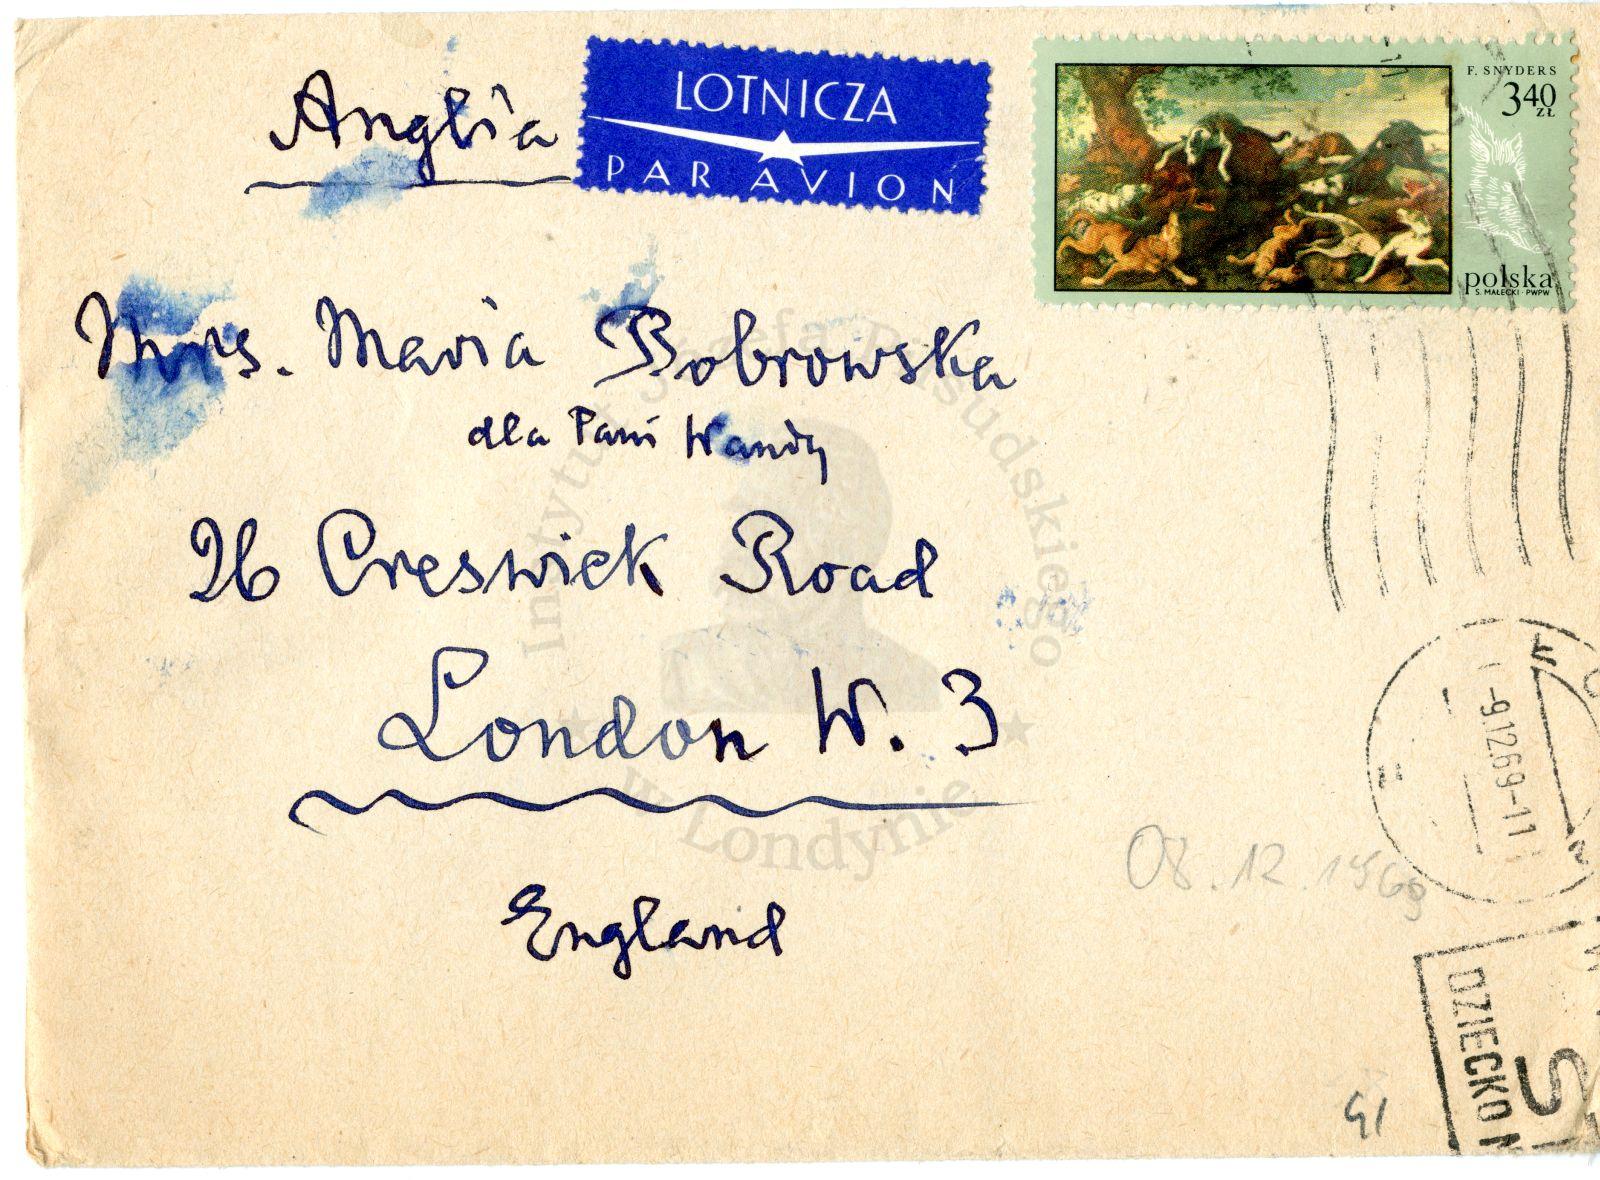 Anglia
LOTNICZA
PAR AVION
F. SNYDERS
3 40 ZŁ
polska
S. MAŁECKI · PWPW
Mrs. Maria Bobrowska
dla Pani Wandy
26 Creswick Road
London W. 3
England
-9.12.69-11
08.12.1969
DZIECKO
Instytut Józefa Piłsudskiego
w Londynie